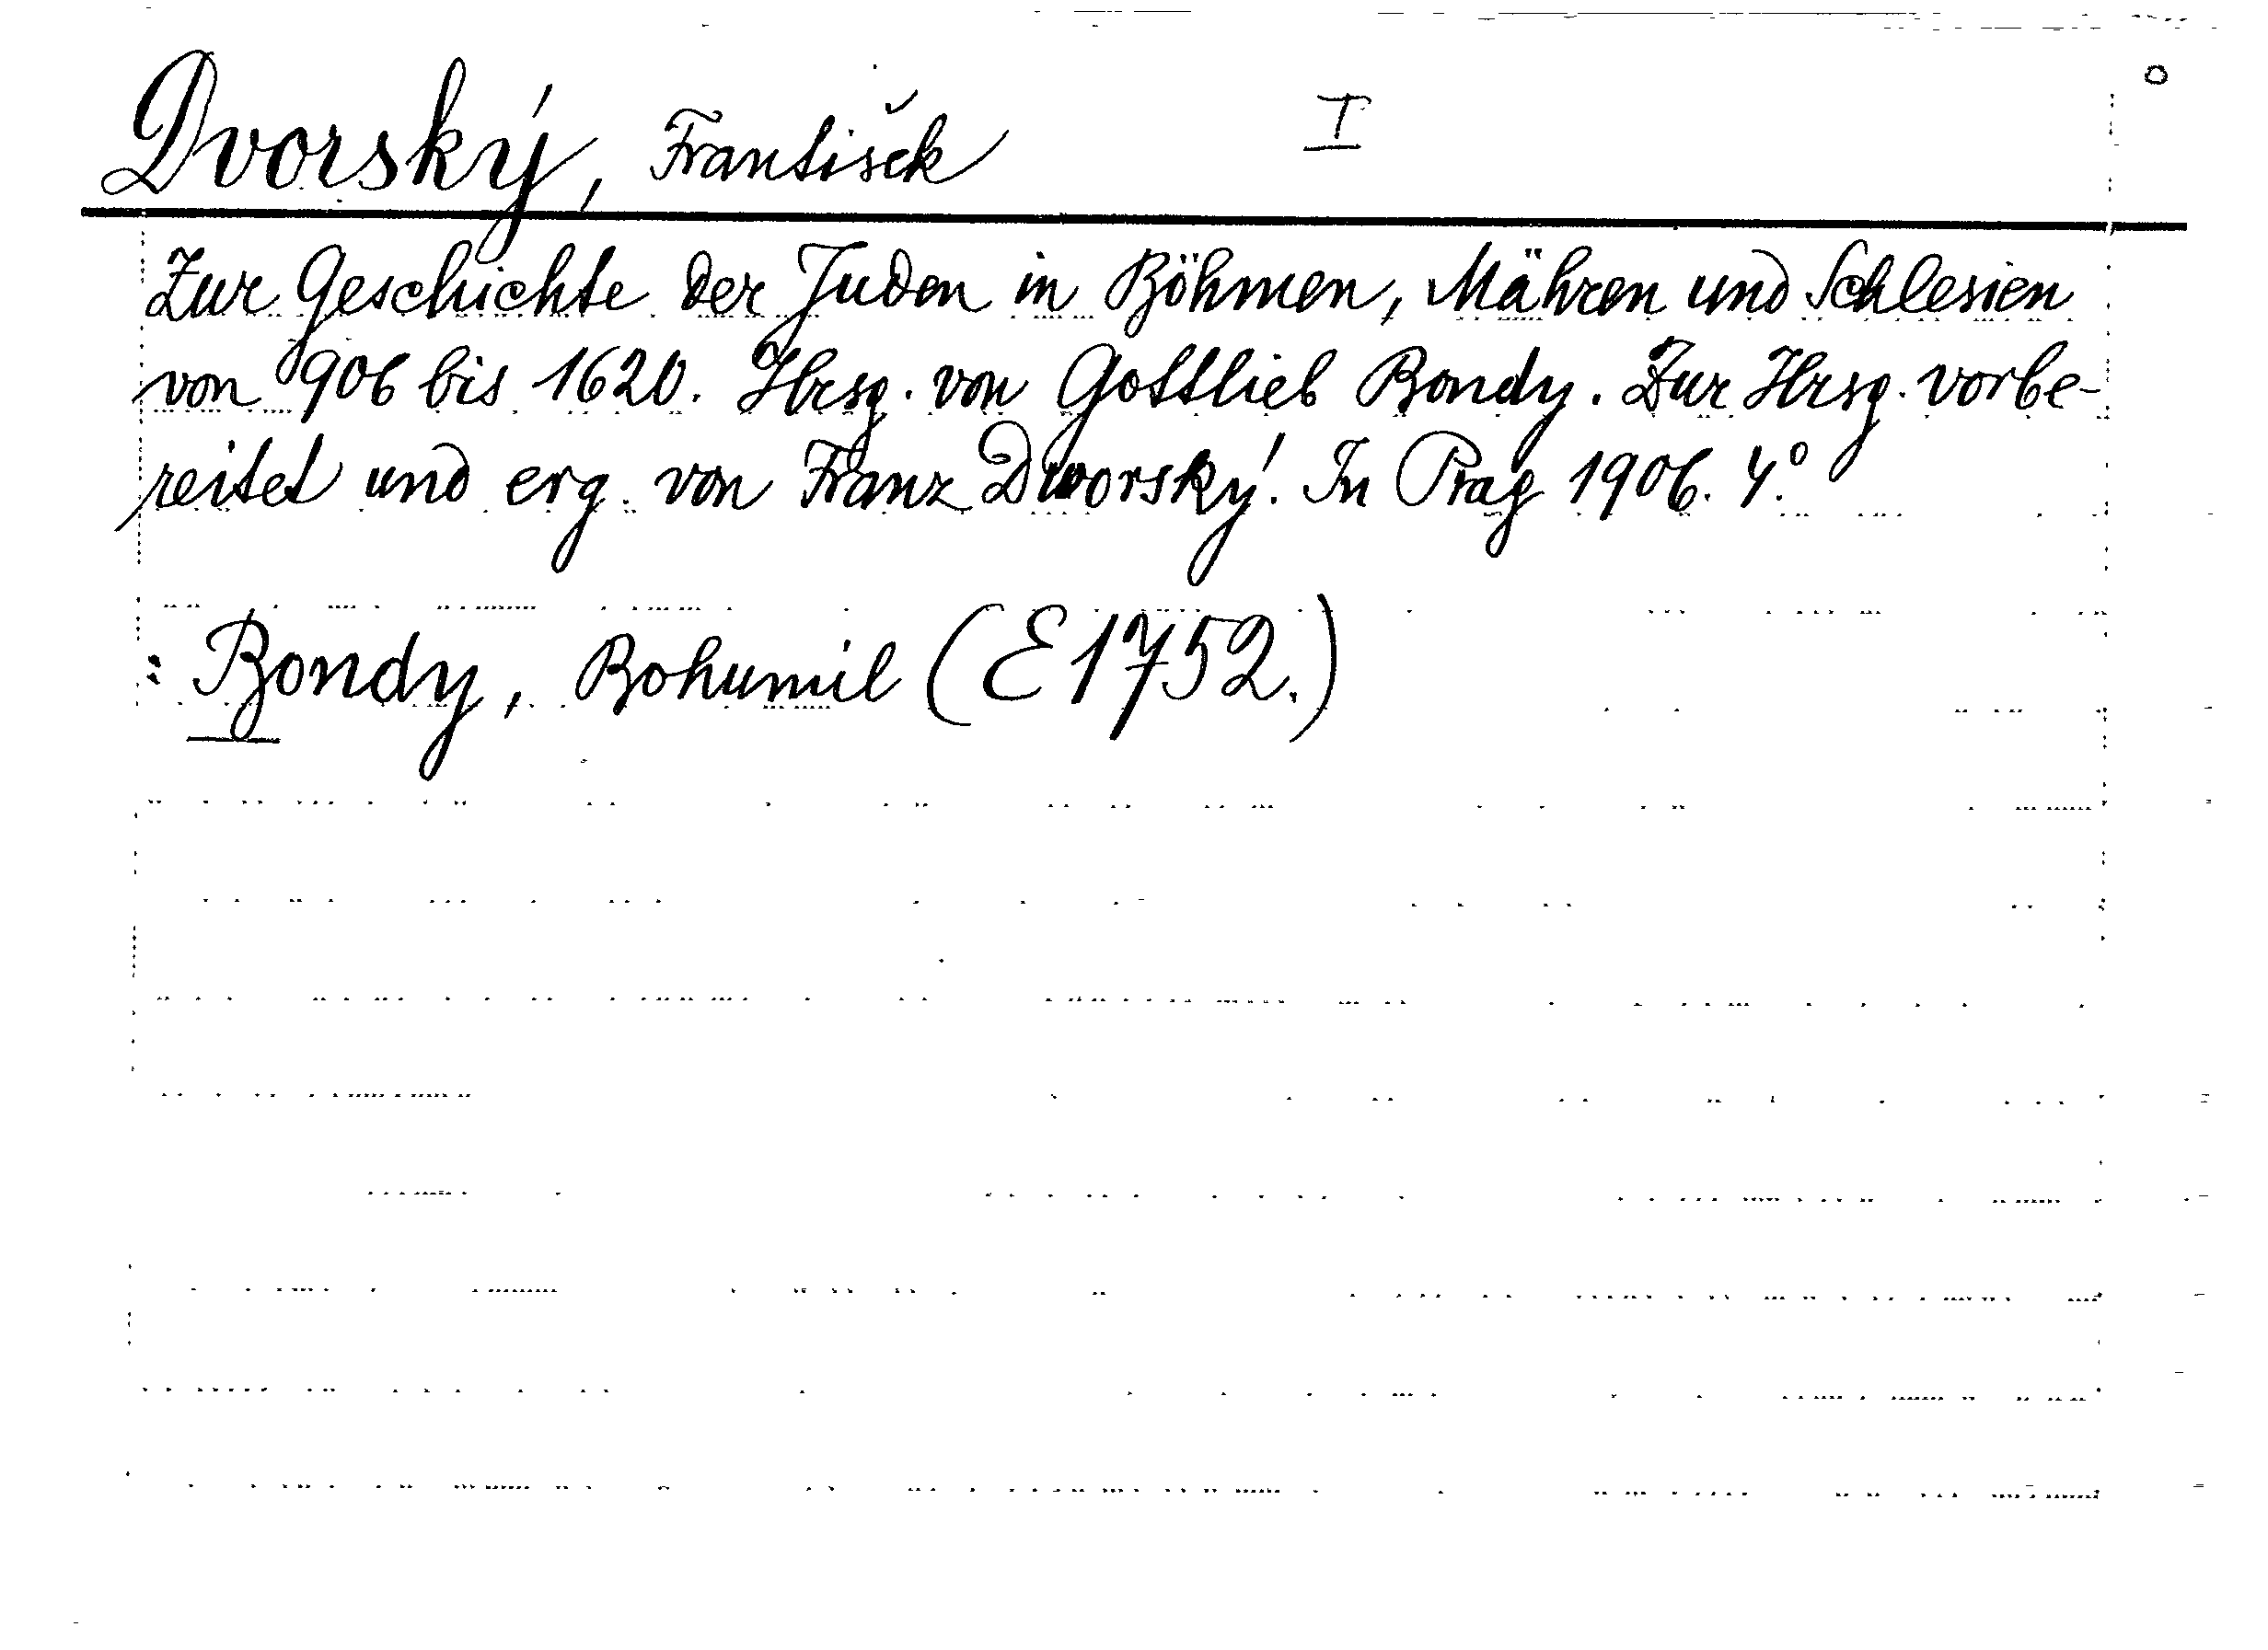 Dvorský, František I
Zur Geschichte der Juden in Böhmen, Mähren und Schlesien
von 906 bis 1620. Hrsg. von Gottlieb Bondy. Zur Hrsg. vorbe-
reitet und erg. von Franz Dworský. In Prag 1906. 4.°
: Bondy, Bohumil (E1752.)